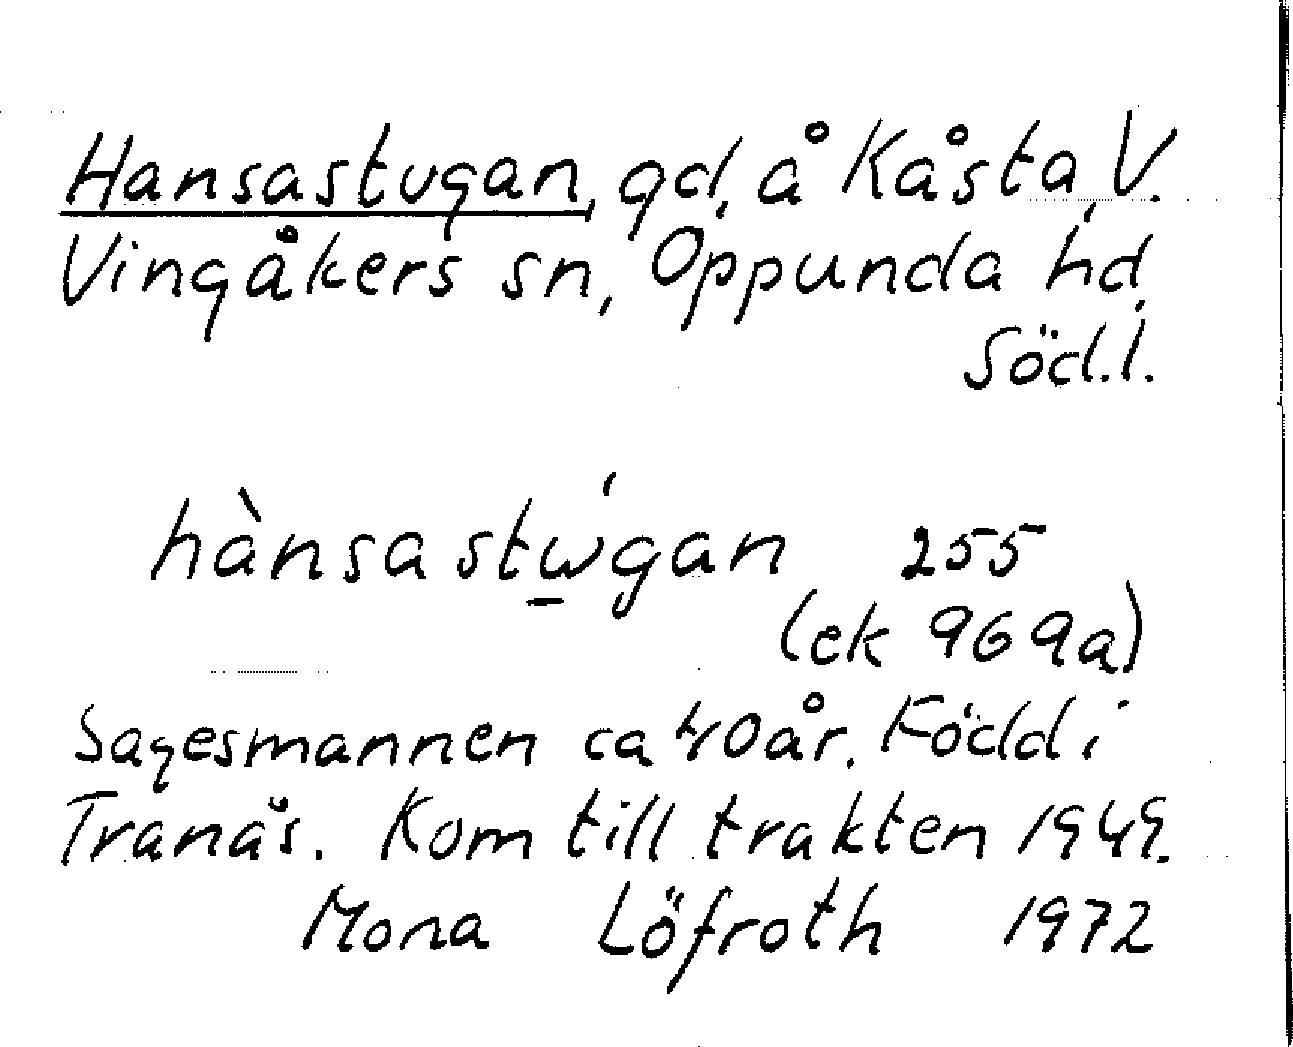 Hansastugan, gd, å Kåsta, V.
Vingåkers sn, Oppunda hd,
Söd.l.
hànsastώ̱gan 255
(ek 969a)
Sagesmannen ca 40 år. Född i
Tranås. Kom till trakten 1949.
Mona Löfroth 1972